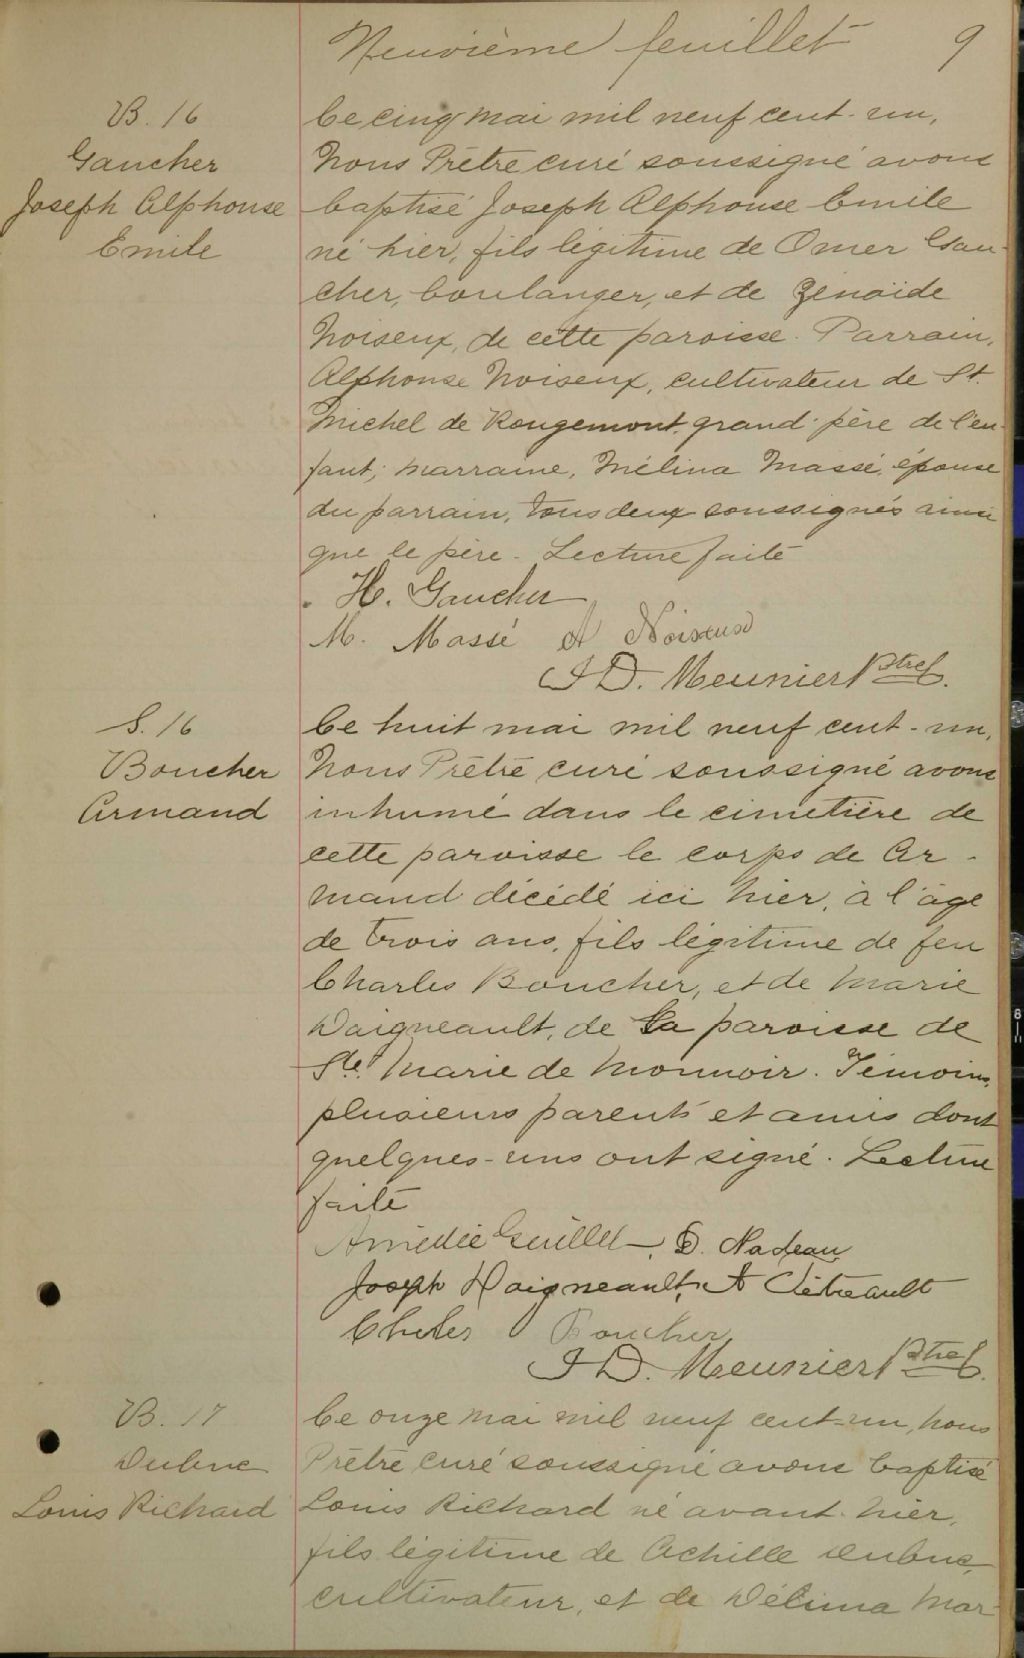 Neuvième feuillet 9
B. 16
Gaucher
Joseph Alphonse
Emile
Ce cinq mai mil neuf cent-un,
Nous Prêtre curé soussigné avons
baptisé Joseph Alphonse Emile
né hier, fils légitime de Omer Gau-
cher, boulanger, et de Zénaïde
Noiseux, de cette paroisse. Parrain,
Alphonse Noiseux, cultivateur de St.
Michel de Rougemont, grand-père de l'en-
fant; marraine, Mélina Massé, épouse
du parrain, tous deux soussignés ainsi
que le père. Lecture faite
H. Gaucher
M. Massé A Noiseux
J D. Meunier Ptre
S. 16
Boucher
Armand
Ce huit mai mil neuf cent-un,
Nous Prêtre curé soussigné avons
inhumé dans le cimetière de
cette paroisse le corps de Ar-
mand décédé ici hier, à l'âge
de trois ans, fils légitime de feu
Charles Boucher, et de Marie
Daigneault, de la paroisse de
Ste Marie de Monnoir. Témoins,
plusieurs parents et amis dont
quelques-uns ont signé. Lecture
faite
Amédée Guillet, D. Nadeau
Joseph Daigneault, A Tétreault
Boucher
J D. Meunier Ptre
B. 17
Dubuc
Louis Richard
Ce onze mai mil neuf cent-un, Nous
Prêtre curé soussigné avons baptisé
Louis Richard né avant-hier,
fils légitime de Achille Dubuc,
cultivateur, et de Délima Mar-